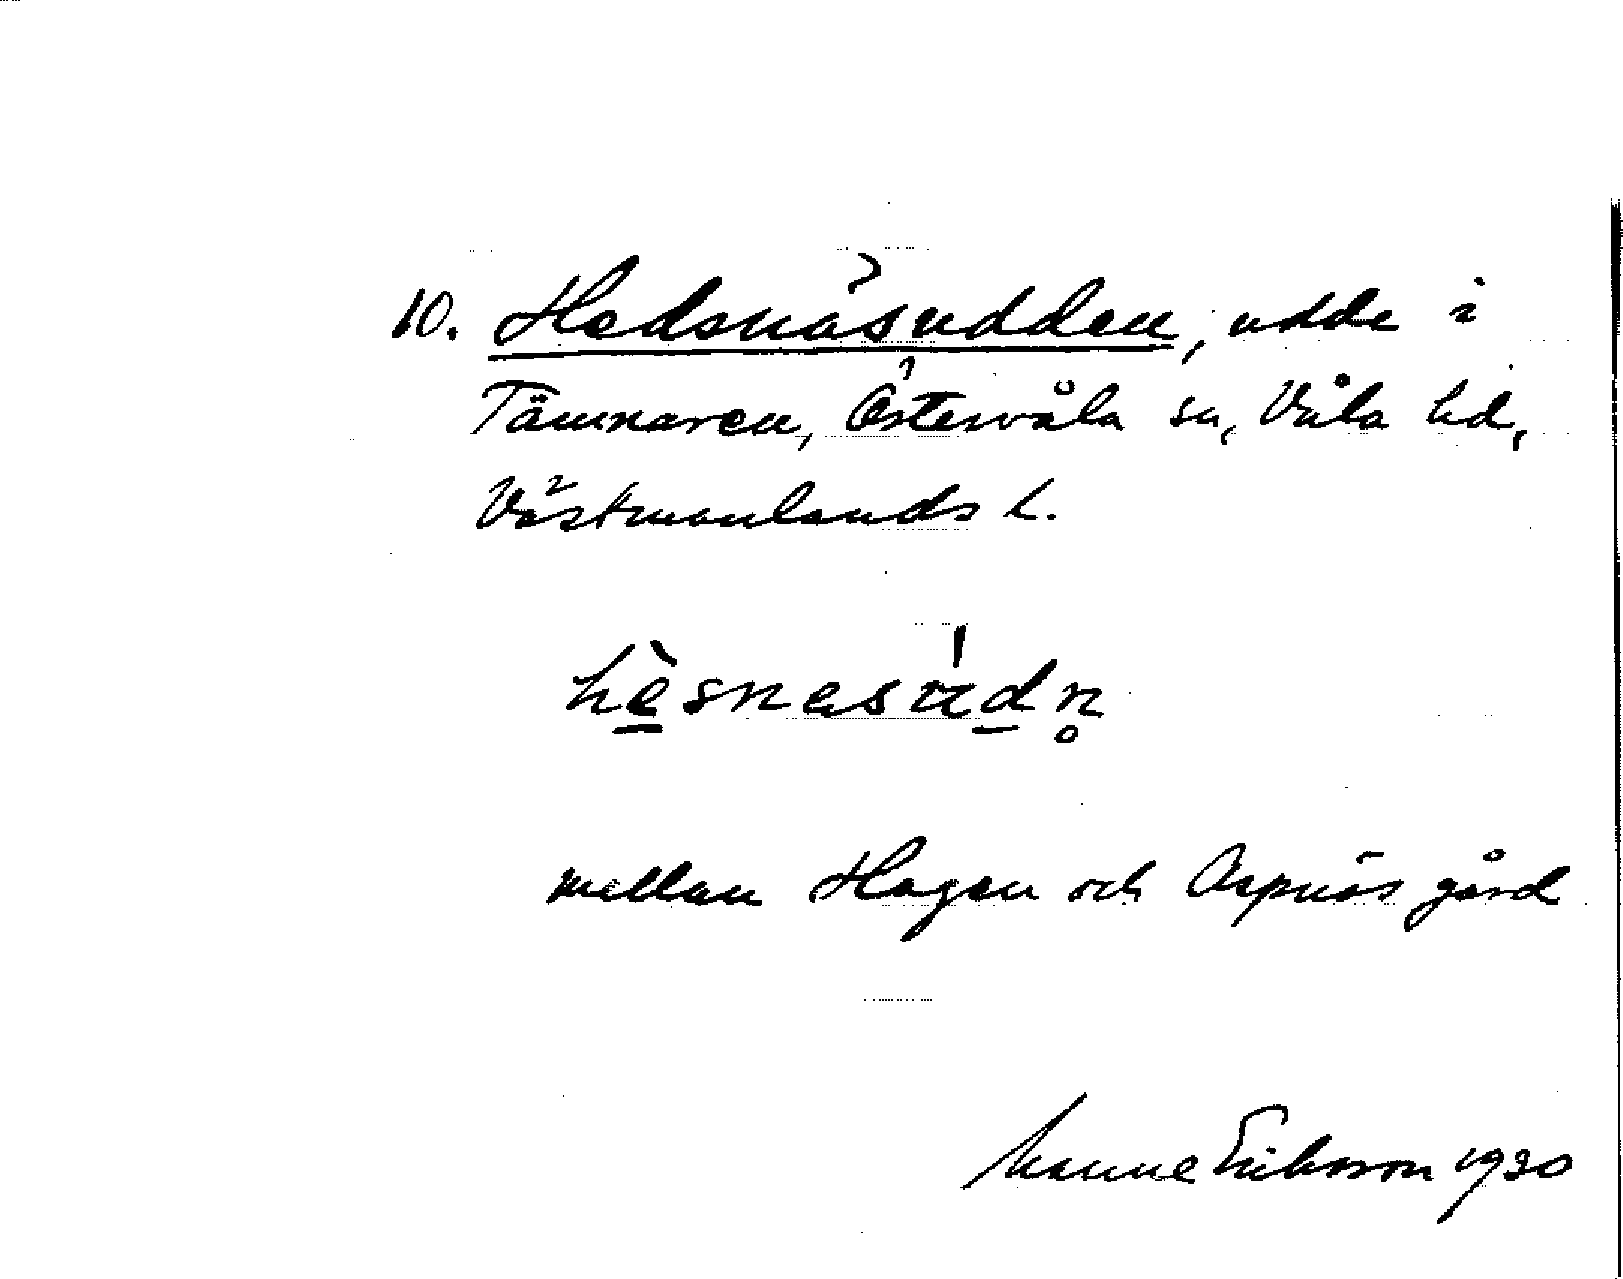 10. Hedsnäsudden, udde i
Tämnaren, Östervåla sn, Våla hd,
Västmanlands l.
hèsnesúdn̥
mellan Hagen och Aspnäs gård
Manne Eriksson 1930